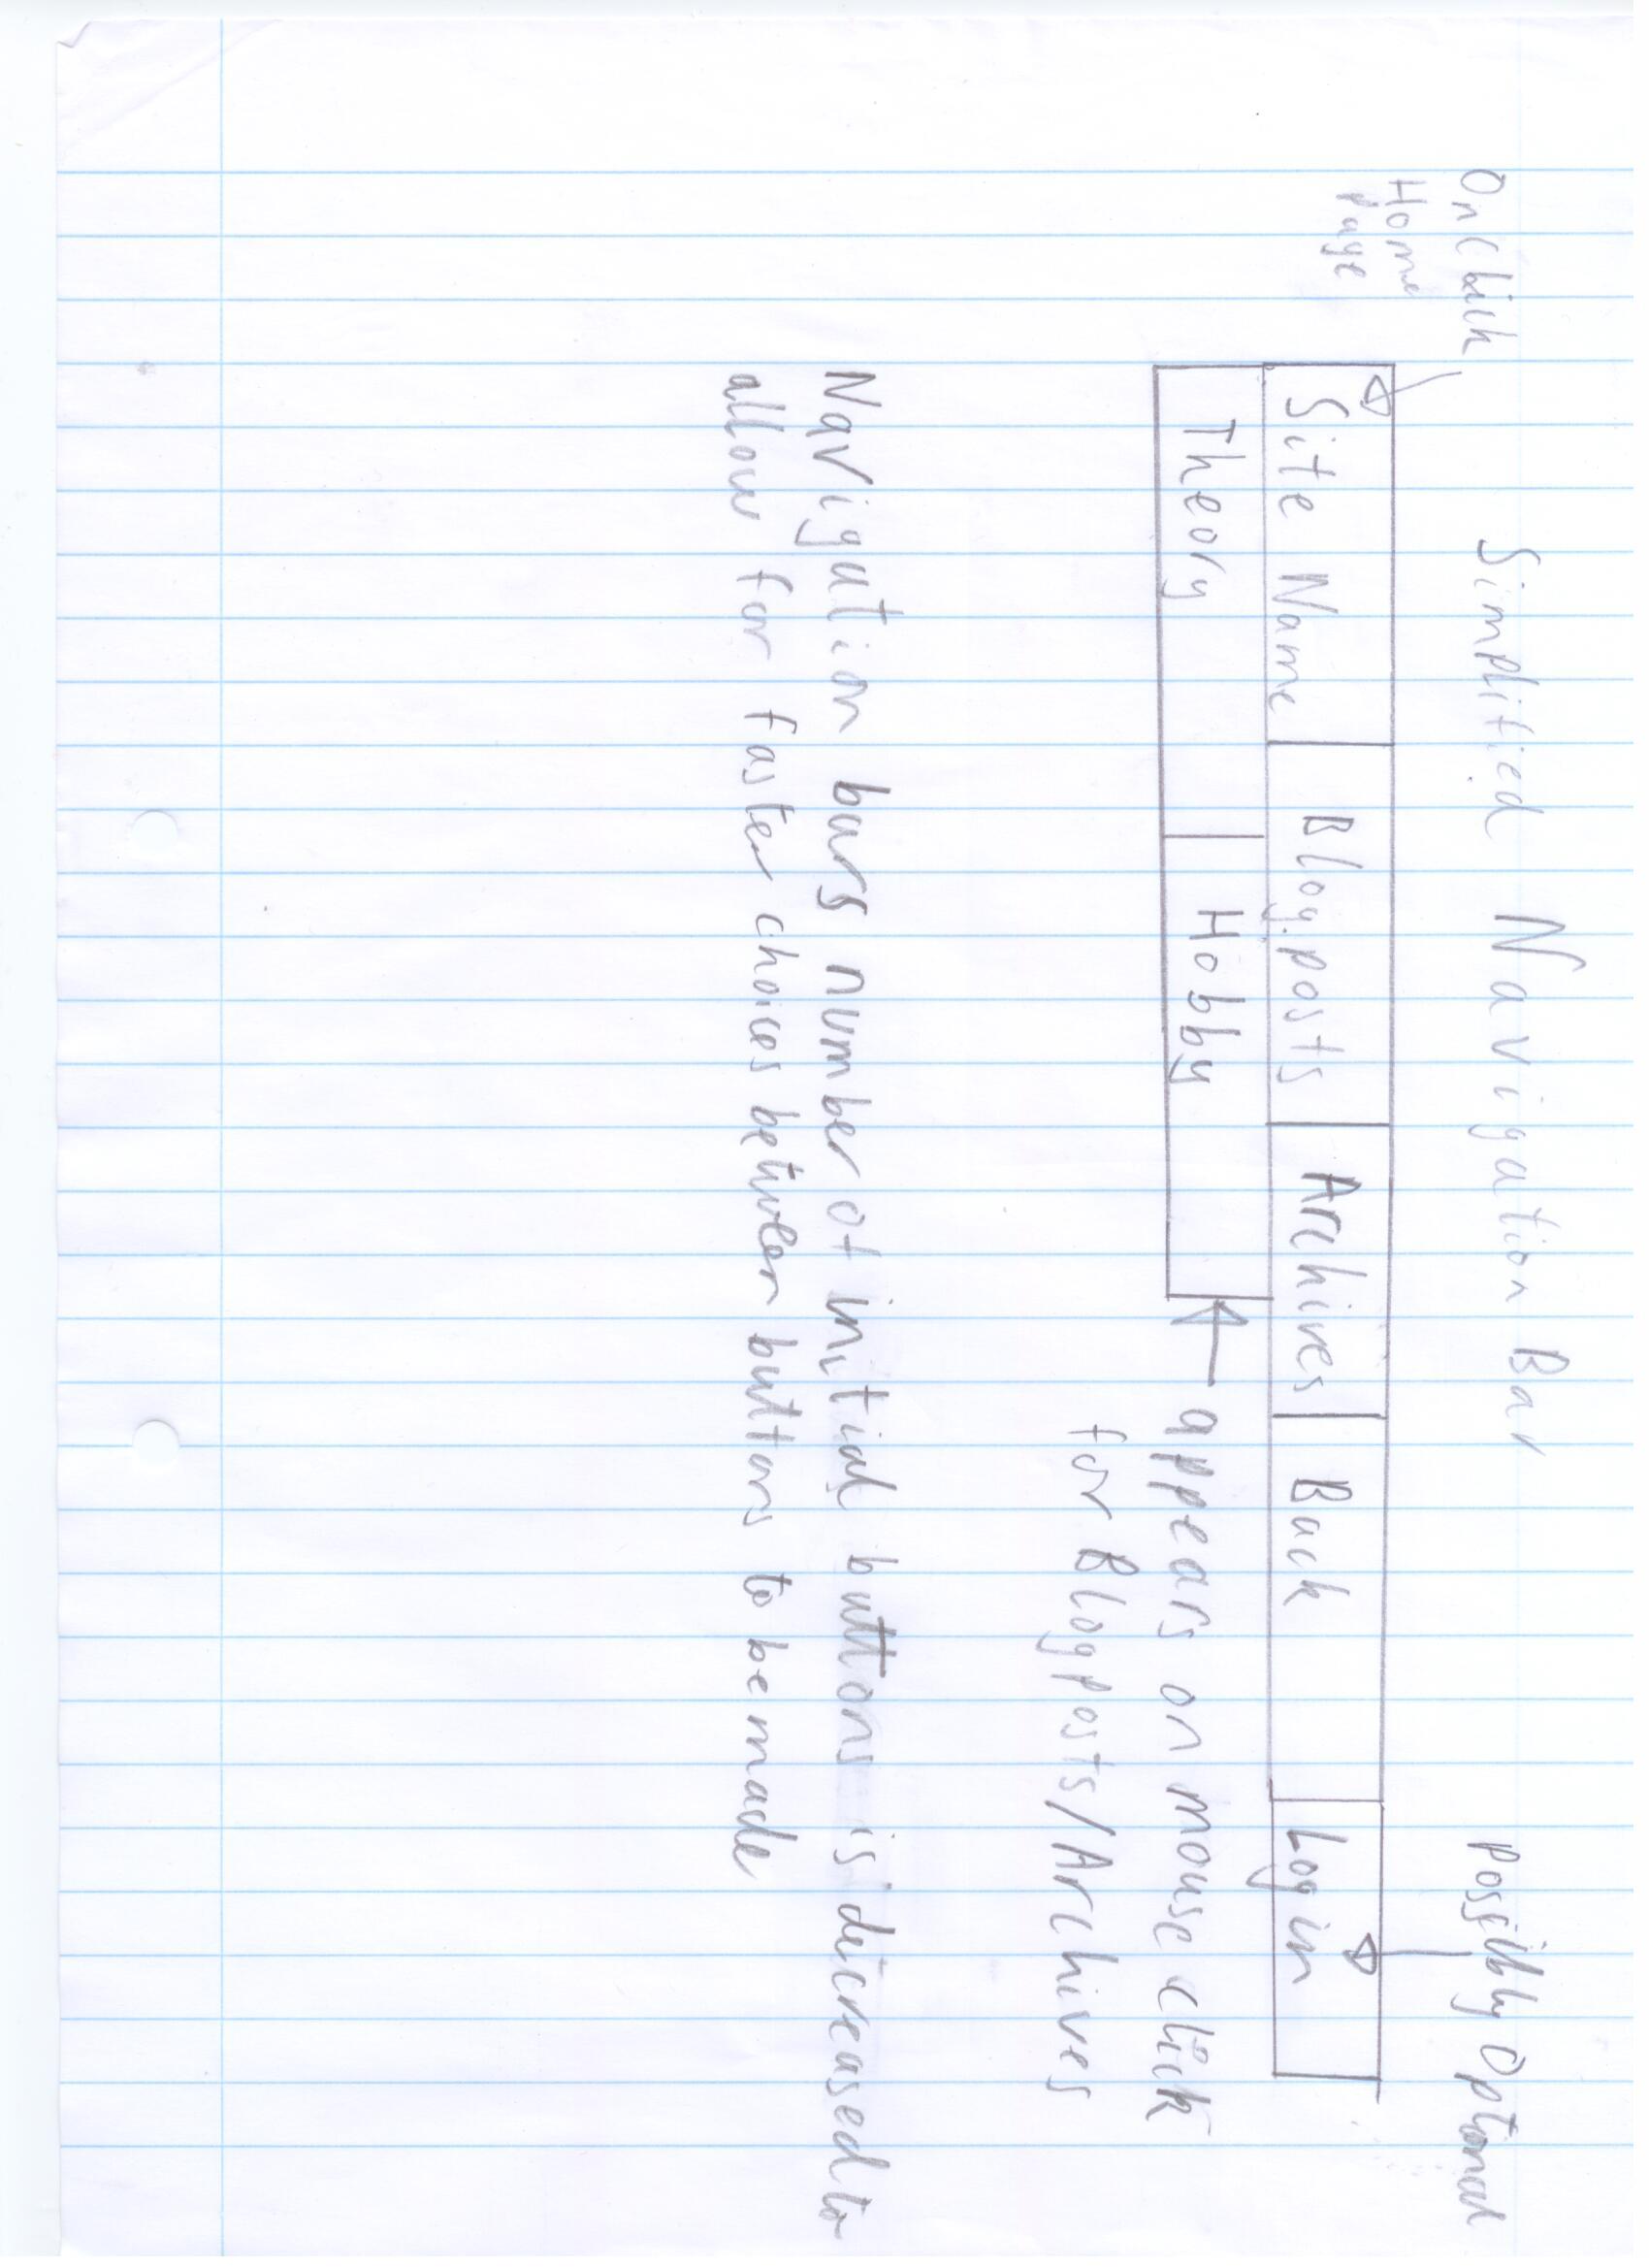 Simplified Navigation Bar
Possibly Optional
Onclick
Home
Page
Site Name Blog posts Archives Back Login
Theory Hobby
appears on mouse click
for Blogposts/Archives
Navigation bars number of initial buttons is decreased to
allow for faster choices between buttons to be made